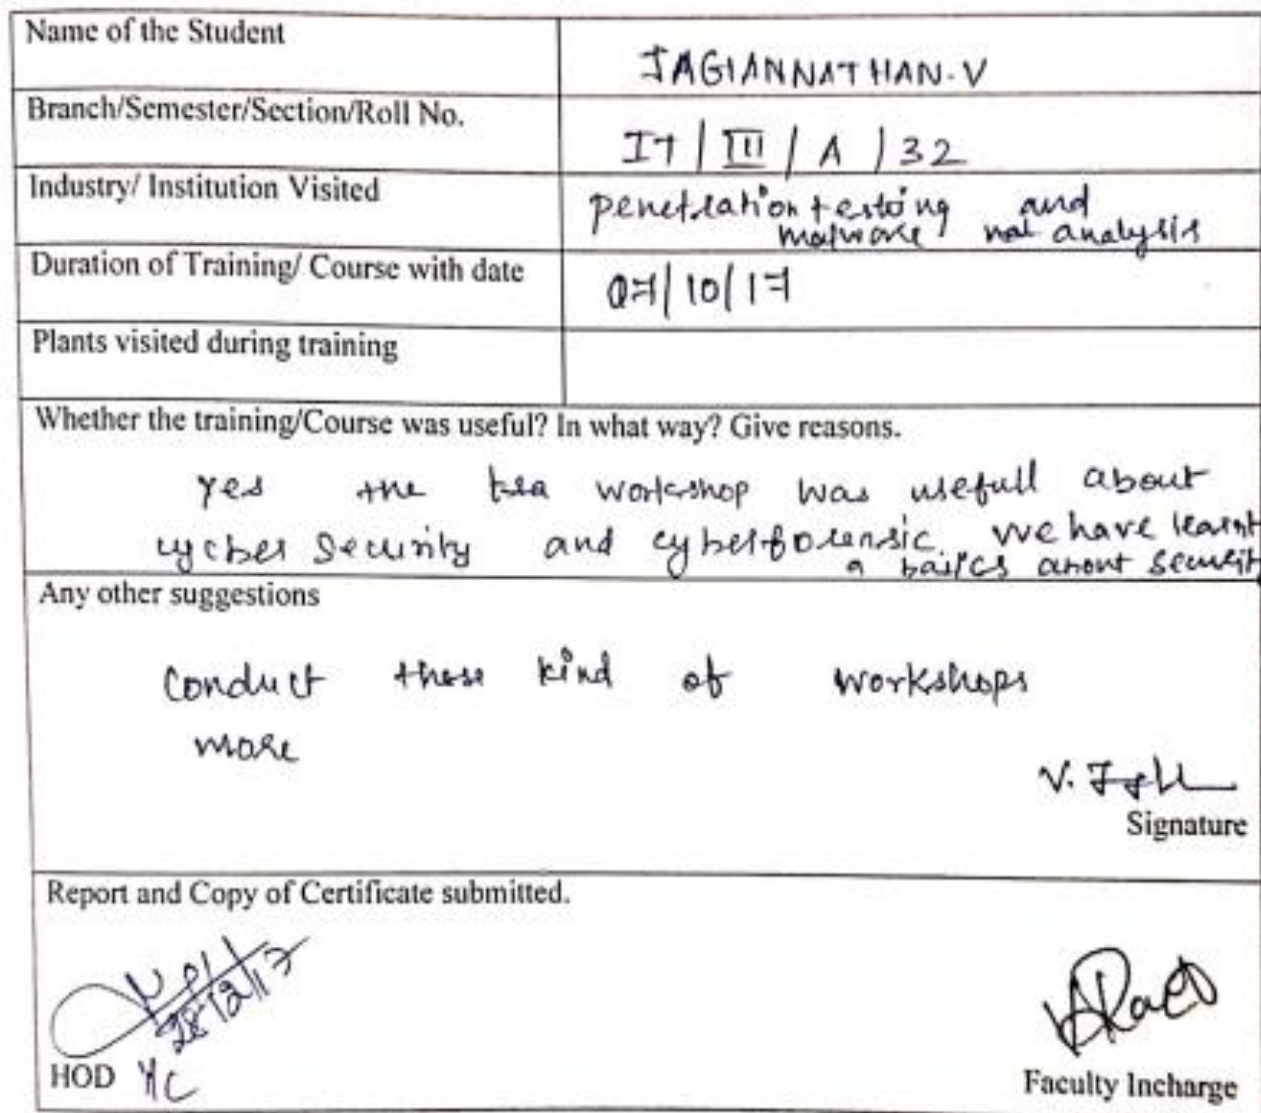 Name of the Student
JAGANNATHAN.V
Branch/Semester/Section/Roll No.
IT / III / A / 32
Industry/ Institution Visited
penetration testing and
malware analysis
Duration of Training/ Course with date
07/10/17
Plants visited during training
Whether the training/Course was useful? In what way? Give reasons.
Yes the workshop was usefull about
cycber Security and cyberforensic. we have learnt
a basics about securit
Any other suggestions
Conduct these kind of workshops
more
Signature
Report and Copy of Certificate submitted.
28/12/17
HOD
Faculty Incharge